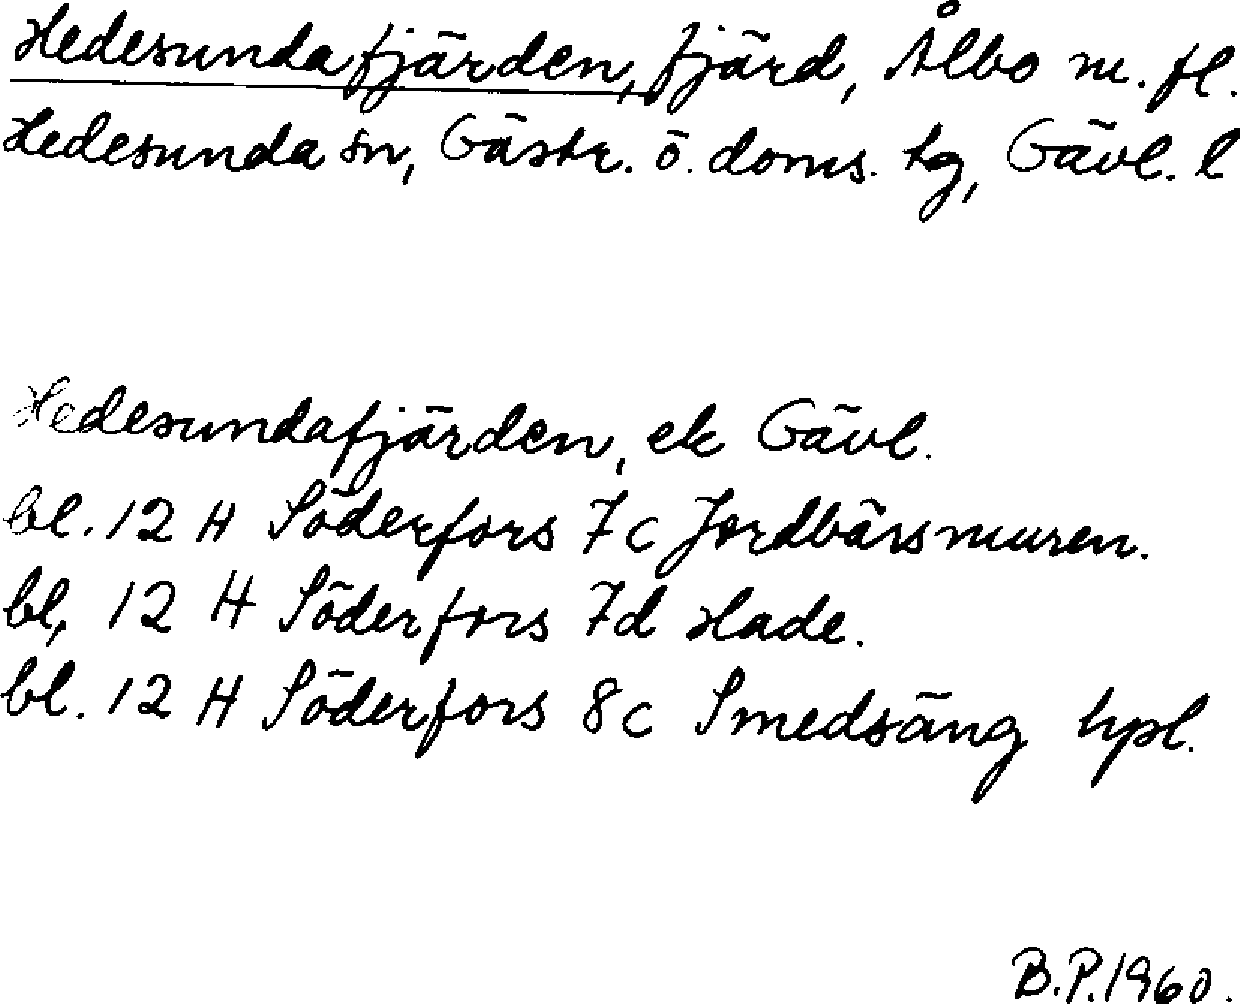 Hedesundafjärden, fjärd, Ålbo m. fl.
Hedesunda sn, Gästr. ö. doms. tg, Gävl. l
Hedesundafjärden, ek Gävl.
bl. 12 H Söderfors 7c Jordbärsmuren.
bl, 12 H Söderfors 7d Hade.
bl. 12 H Söderfors 8c Smedsäng hpl.
B.P. 1960.